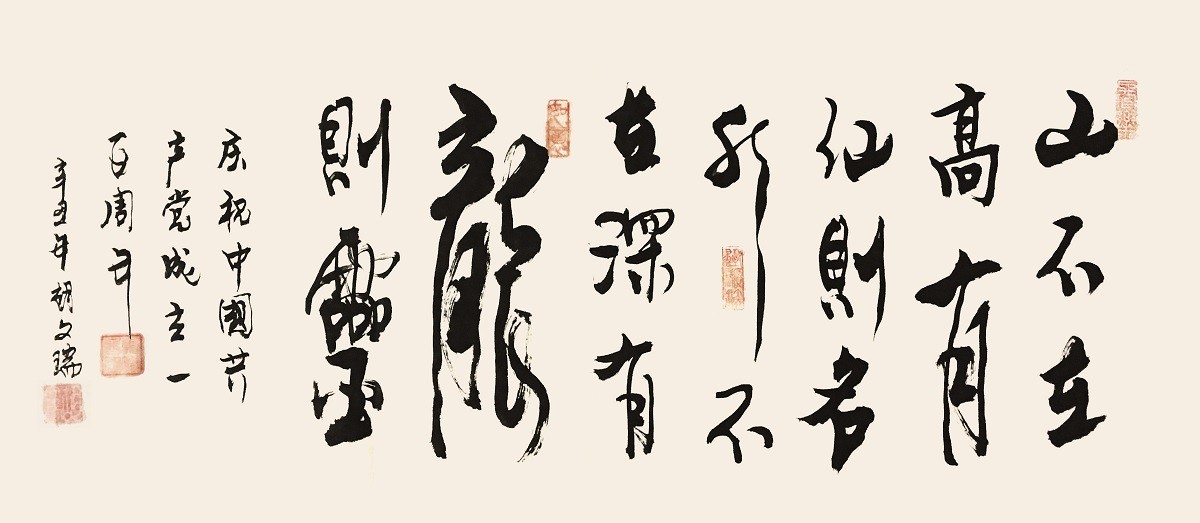 山不在
高有
仙則名
水不
在深有
龍
則靈
庆祝中國共
产党成立一
百周年
辛丑年胡文瑞